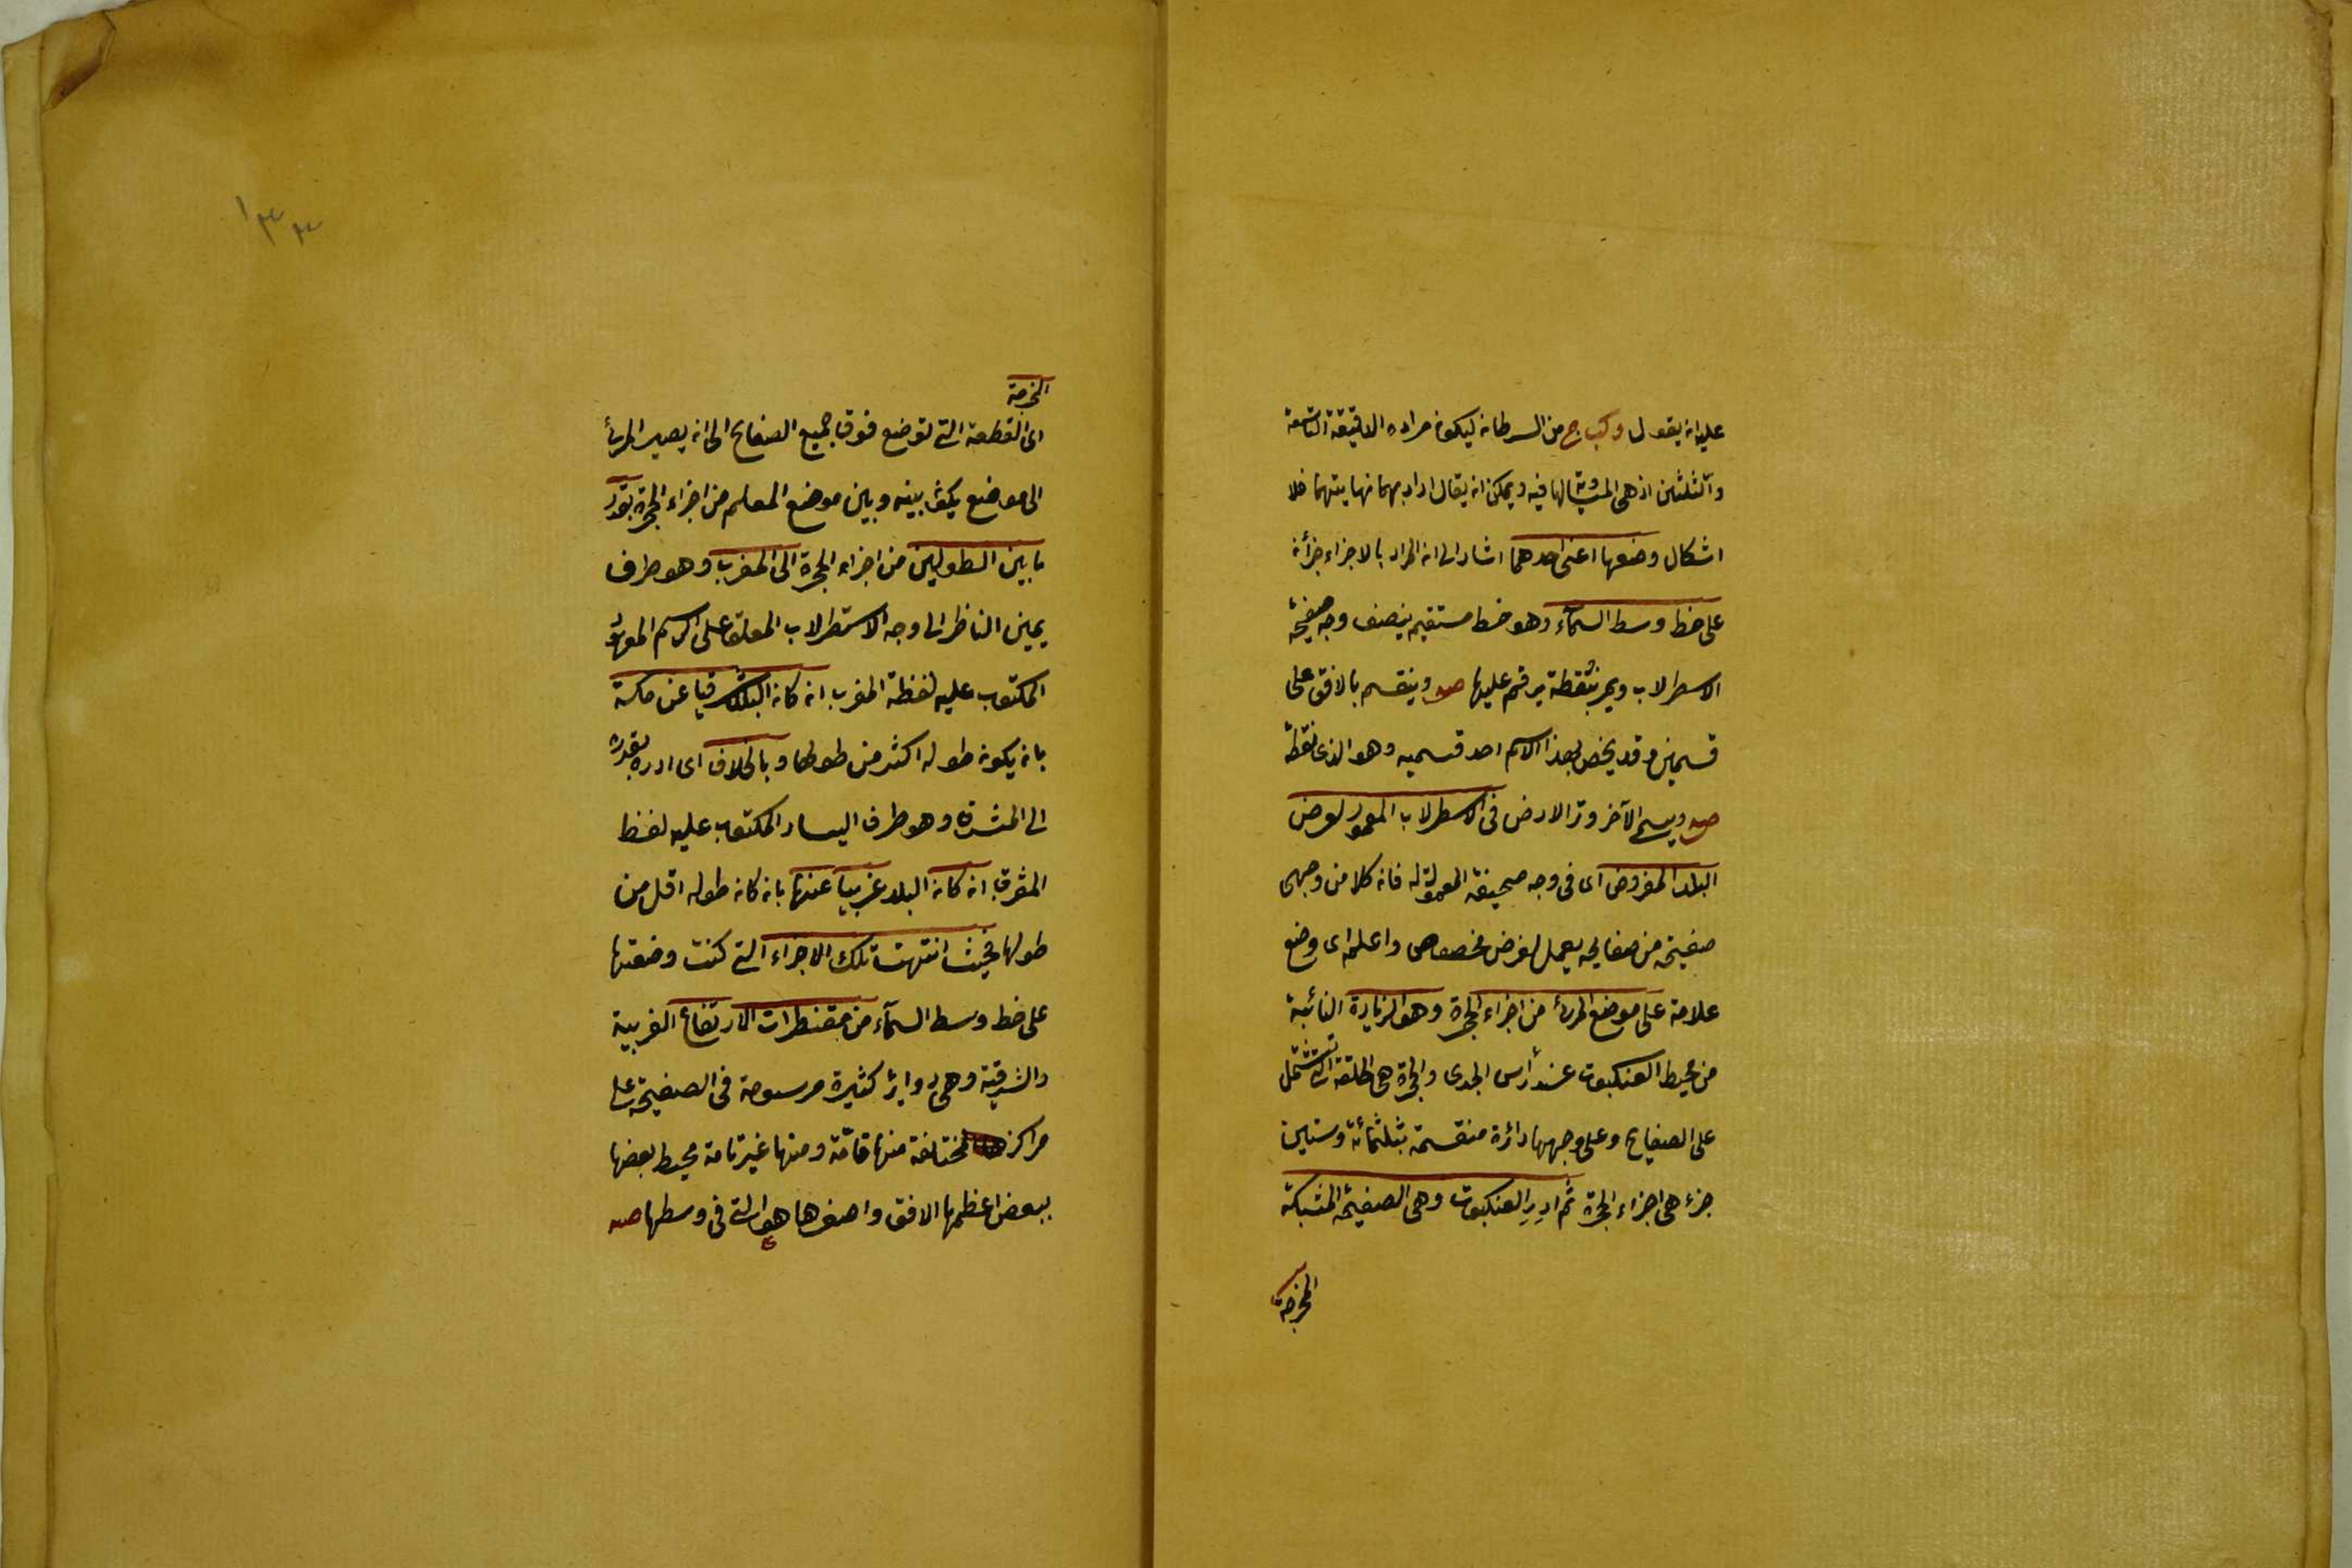 عليه ان يقول وكب ج من السرطان ليكون مراده الدقيقة التاسعة
والثلثين اذ هى المساوية لها فيه ويمكن ان يقال اراد بهما نهايتهما فلا
اشكال وضعها اعنى احدهما اشار الى ان المراد بالاجزاء جزأن
على خط وسط السمآء وهو خط مستقيم ينصف وجه صفيحة
الاسطرلاب ويمر بنقطة يرقم عليها ص وينقسم بالافق على
قسمين وقد يخص بهذا الاسم احد قسميه وهو الذى نقطة
ص ويسمى الآخر وتر الارض فى الاسطرلاب المعمول لعرض
البلد المفروض اى فى وجه صحيفة المعمولة له فان كلا من وجهى
صفيحة من صفايحه يعمل لعرض مخصوص واعلم اى وضع
علامة على موضع المرئ من اجزاء الحجرة وهو الزيادة النائبة
من محيط العنكبوت عند رأس الجدى والحجرة هى الحلقة التى تشتمل
على الصفايح وعلى وجهها دائرة منقسمة بثلثمائة وستين
جزء هى اجزاء الحجرة ثم ادر العنكبوت وهى الصفيحة المشبكة
المخرمة
المخرمة
اى القطعة التى توضع فوق جميع الصفايح الى ان يصير المرئ
الى موضع يكون بينه وبين موضع المعلم من اجزاء الحجرة بقدر
ما بين الطولين من اجزاء الحجرة الى المغرب وهو طرف
يمين الناظر الى وجه الاسطرلاب المعلق على الرسم المعهود
المكتوب عليه لفظة المغرب ان كان البلد شرقيا عن مكة
بان يكون طوله اكثر من طولها وبالخلاف اى ادره بقدره
الى المشرق وهو طرف اليسار المكتوب عليه لفظ
المشرق ان كان البلد غربيا عنها بان كان طوله اقل من
طولها فحيث انتهت تلك الاجزاء التى كنت وضعتها
على خط وسط السمآء من مقنطرات الارتفاع الغربية
والشرقية وهى دواير كثيرة مرسومة فى الصفيحة على
مراكز مختلفة منها تامة ومنها غير تامة محيط بعضها
ببعض اعظمها الافق واصغرها هو التى فى وسطها ص